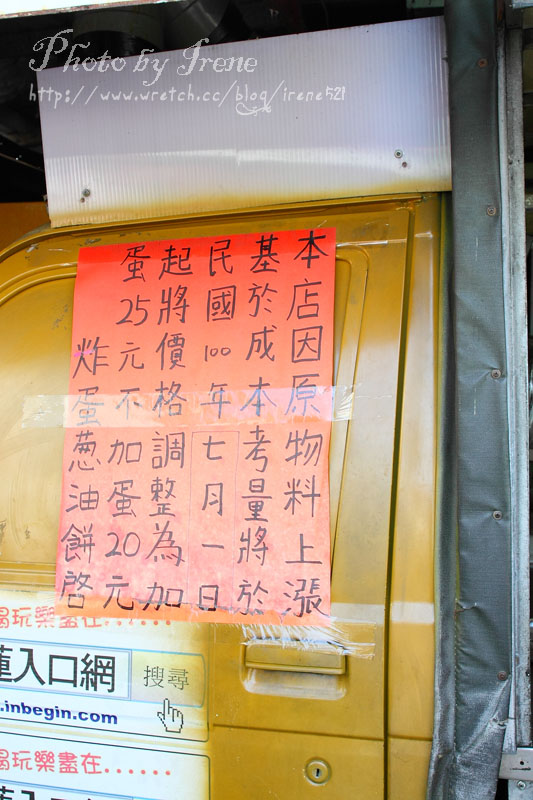 Photo by Irene
http://www.wretch.cc/blog/irene521
本店因原物料上漲
基於成本考量將於
民國100年七月一日
起將價格調整為加
蛋25元不加蛋20元
炸蛋蔥油餅啓
喝玩樂盡在......
蓮入口網 搜尋
.inbegin.com
喝玩樂盡在......
蓮入口網